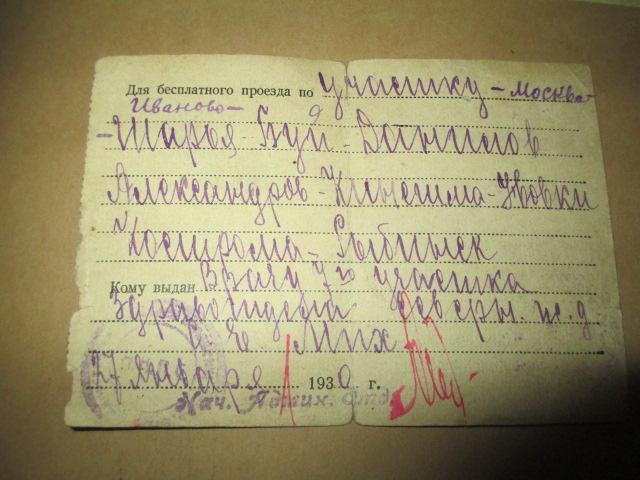 Для бесплатного проезда по участку - Москва-
Иваново-
-Шарья-Буй-Данилов
Александров-Кинешма-
Кострома-Рыбинск
Кому выдан Врачу 7го участка
Здравотдела Сев ж. д
27 января 1930 г.
Нач. Админ. Отд.